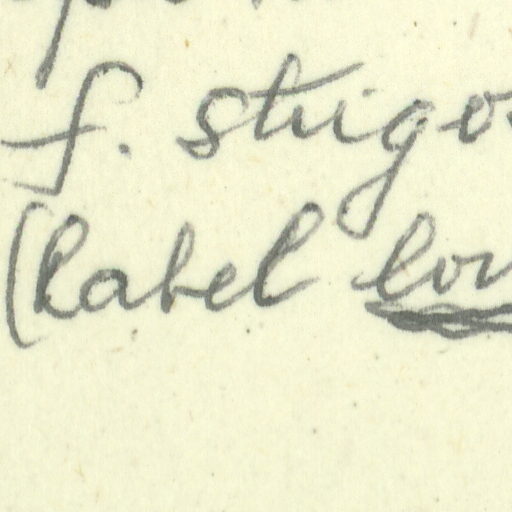 f. strigos
(Label lou